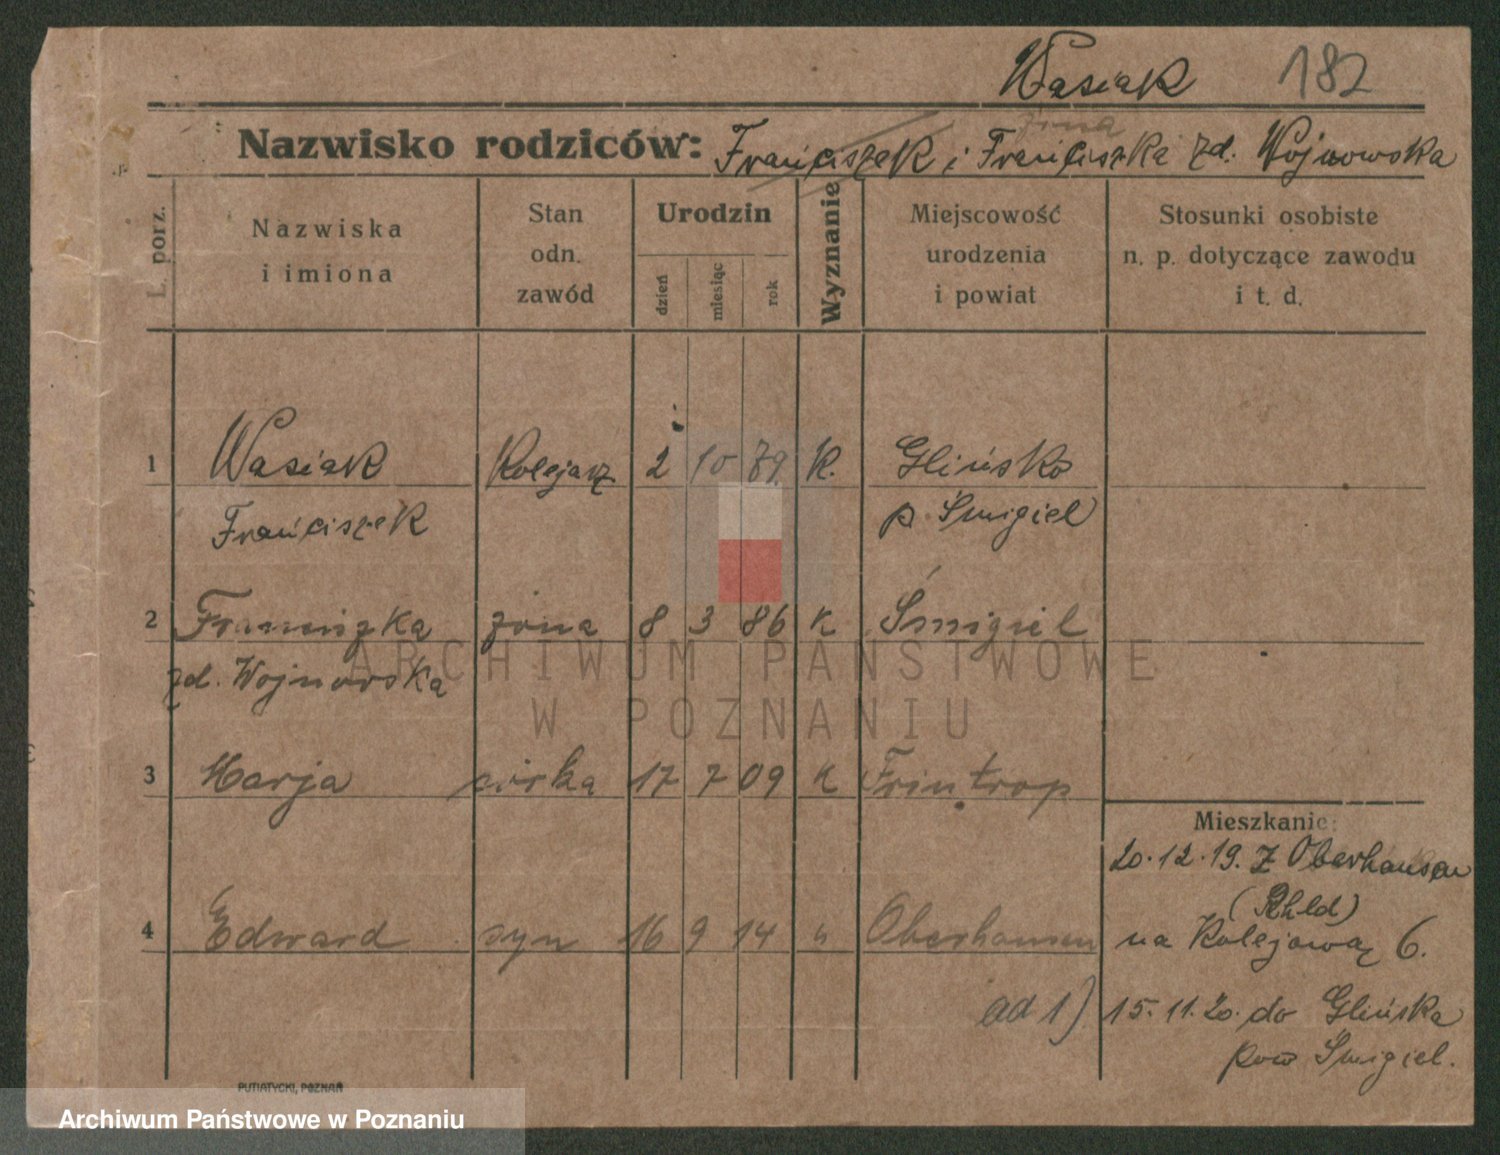 Wasiak 182
żona
Nazwisko rodziców: Franciszek i Franciszka zd. Wojnowska
L. porz.
Nazwiska i imiona
Stan odn. zawód
Urodzin
dzień miesiąc rok
Wyznanie
Miejscowość urodzenia i powiat
Stosunki osobiste n. p. dotyczące zawodu i t. d.
1 Wasiak Kolejarz 2 10 79. K. Glińsko
Franciszek p Śmigiel
2 Franciszka żona 8 3 86 K Śmigiel
zd. Wojnowska
ARCHIWUM PAŃSTWOWE
W POZNANIU
3 Marja córka 17 7 09 K Frintrop
Mieszkanie:
20.12.19. z Oberhausen
(Rhld)
4 Edward syn 16 9 14 K Oberhausen
na Kolejową 6.
ad 1) 15.11.20. do Glińska
pow Śmigiel.
PUTIATYCKI, POZNAŃ
Archiwum Państwowe w Poznaniu